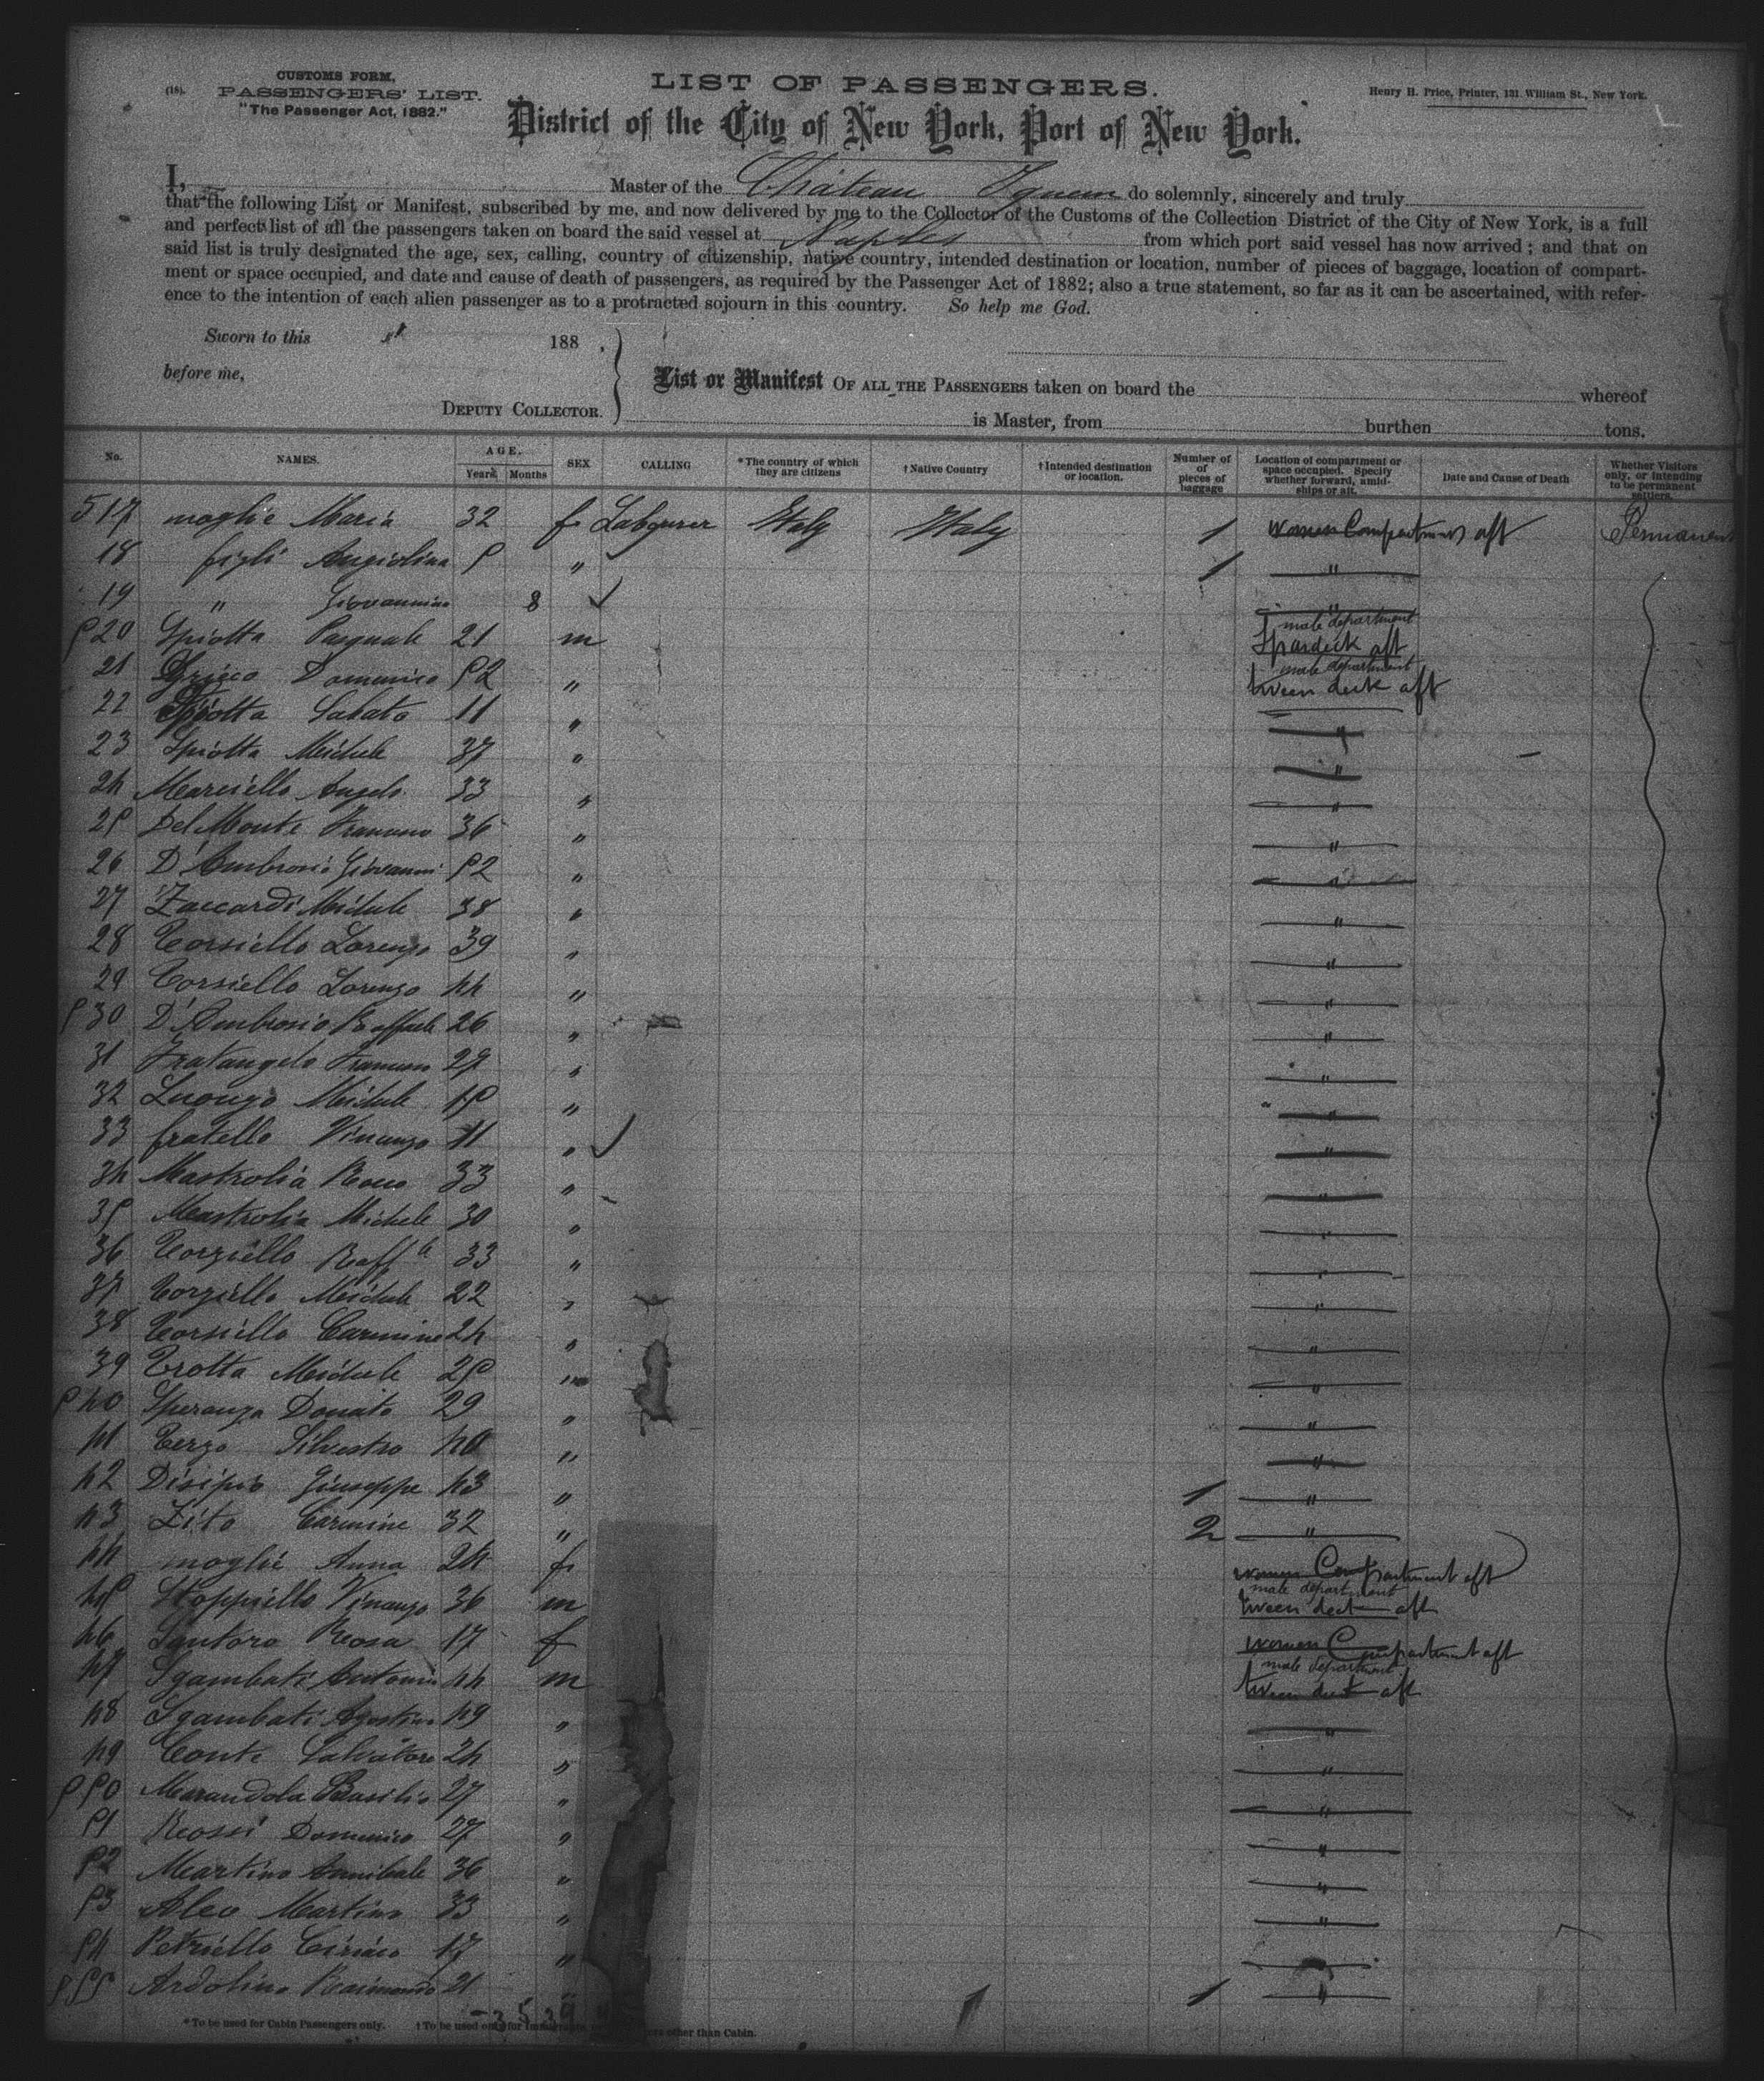 (18).
CUSTOMS FORM,
PASSENGERS' LIST.
"The Passenger Act, 1882."
LIST OF PASSENGERS.
Henry H. Price, Printer, 131 William St., New York.
District of the City of New York, Port of New York.
I, Master of the Château Yquem do solemnly, sincerely and truly
that the following List or Manifest, subscribed by me, and now delivered by me to the Collector of the Customs of the Collection District of the City of New York, is a full
and perfect list of all the passengers taken on board the said vessel at Naples from which port said vessel has now arrived; and that on
said list is truly designated the age, sex, calling, country of citizenship, native country, intended destination or location, number of pieces of baggage, location of compart-
ment or space occupied, and date and cause of death of passengers, as required by the Passenger Act of 1882; also a true statement, so far as it can be ascertained, with refer-
ence to the intention of each alien passenger as to a protracted sojourn in this country. So help me God.
Sworn to this 188 ,
before me,
DEPUTY COLLECTOR.
List or Manifest OF ALL THE PASSENGERS taken on board the whereof
is Master, from burthen tons.
No. NAMES. AGE. Years Months SEX CALLING *The country of which they are citizens †Native Country †Intended destination or location. Number of pieces of baggage Location of compartment or space occupied. Specify whether forward, amidships or aft. Date and Cause of Death Whether Visitors only, or intending to be permanent settlers.
517 moglie Maria 32 f Labourer Italy Italy 1 women Compartment aft Permanent
18 figli Angiolina 5 " 1 "
19 " Giovannina 8 "
520 Spiotta Pasquale 21 m male department Spardeck aft
21 Domenico 52 " male department tween deck aft
22 Spiotta Sabato 11 " "
23 Spiotta Michele 37 " "
24 Marciello Angelo 33 " "
25 Del Monte Francesco 36 " "
26 D'Ambrosio Giovanni 52 " "
27 Zaccardi Michele 38 " "
28 Torsiello Lorenzo 39 " "
29 Torsiello Lorenzo 44 " "
530 D'Ambrosio Raffaele 26 " "
31 Fratangelo Francesco 29 " "
32 Luongo Michele 15 " "
33 fratello Vincenzo 11 " "
34 Mastrolia Rocco 33 " "
35 Mastrolia Michele 30 " "
36 Torziello Raff le 33 " "
37 Torziello Michele 22 " "
38 Torsiello Carmine 24 " "
39 Trotta Michele 25 " "
540 Speranza Donato 29 " "
41 Terzo Silvestro 40 " "
42 Disipio Giuseppe 43 " 1 "
43 Zito Carmine 32 " 2 "
44 moglie Anna 24 f women Compartment aft
45 Stoppiello Vincenzo 36 m male department tween deck aft
46 Santoro Rosa 17 f women Compartment aft
47 Sgambati Antonio 44 m male department tween deck aft
48 Sgambati Agostino 49 " "
49 Conte Salvatore 24 " "
550 Marandola Basilio 27 " "
51 Rossi Domenico 27 " "
52 Martino Annibale 36 " "
53 Aleo Martino 33 " "
54 Petriello Ciriaco 17 " "
555 Ardolino Raimondo 21 " 1 "
*To be used for Cabin Passengers only. †To be used only for other than Cabin.